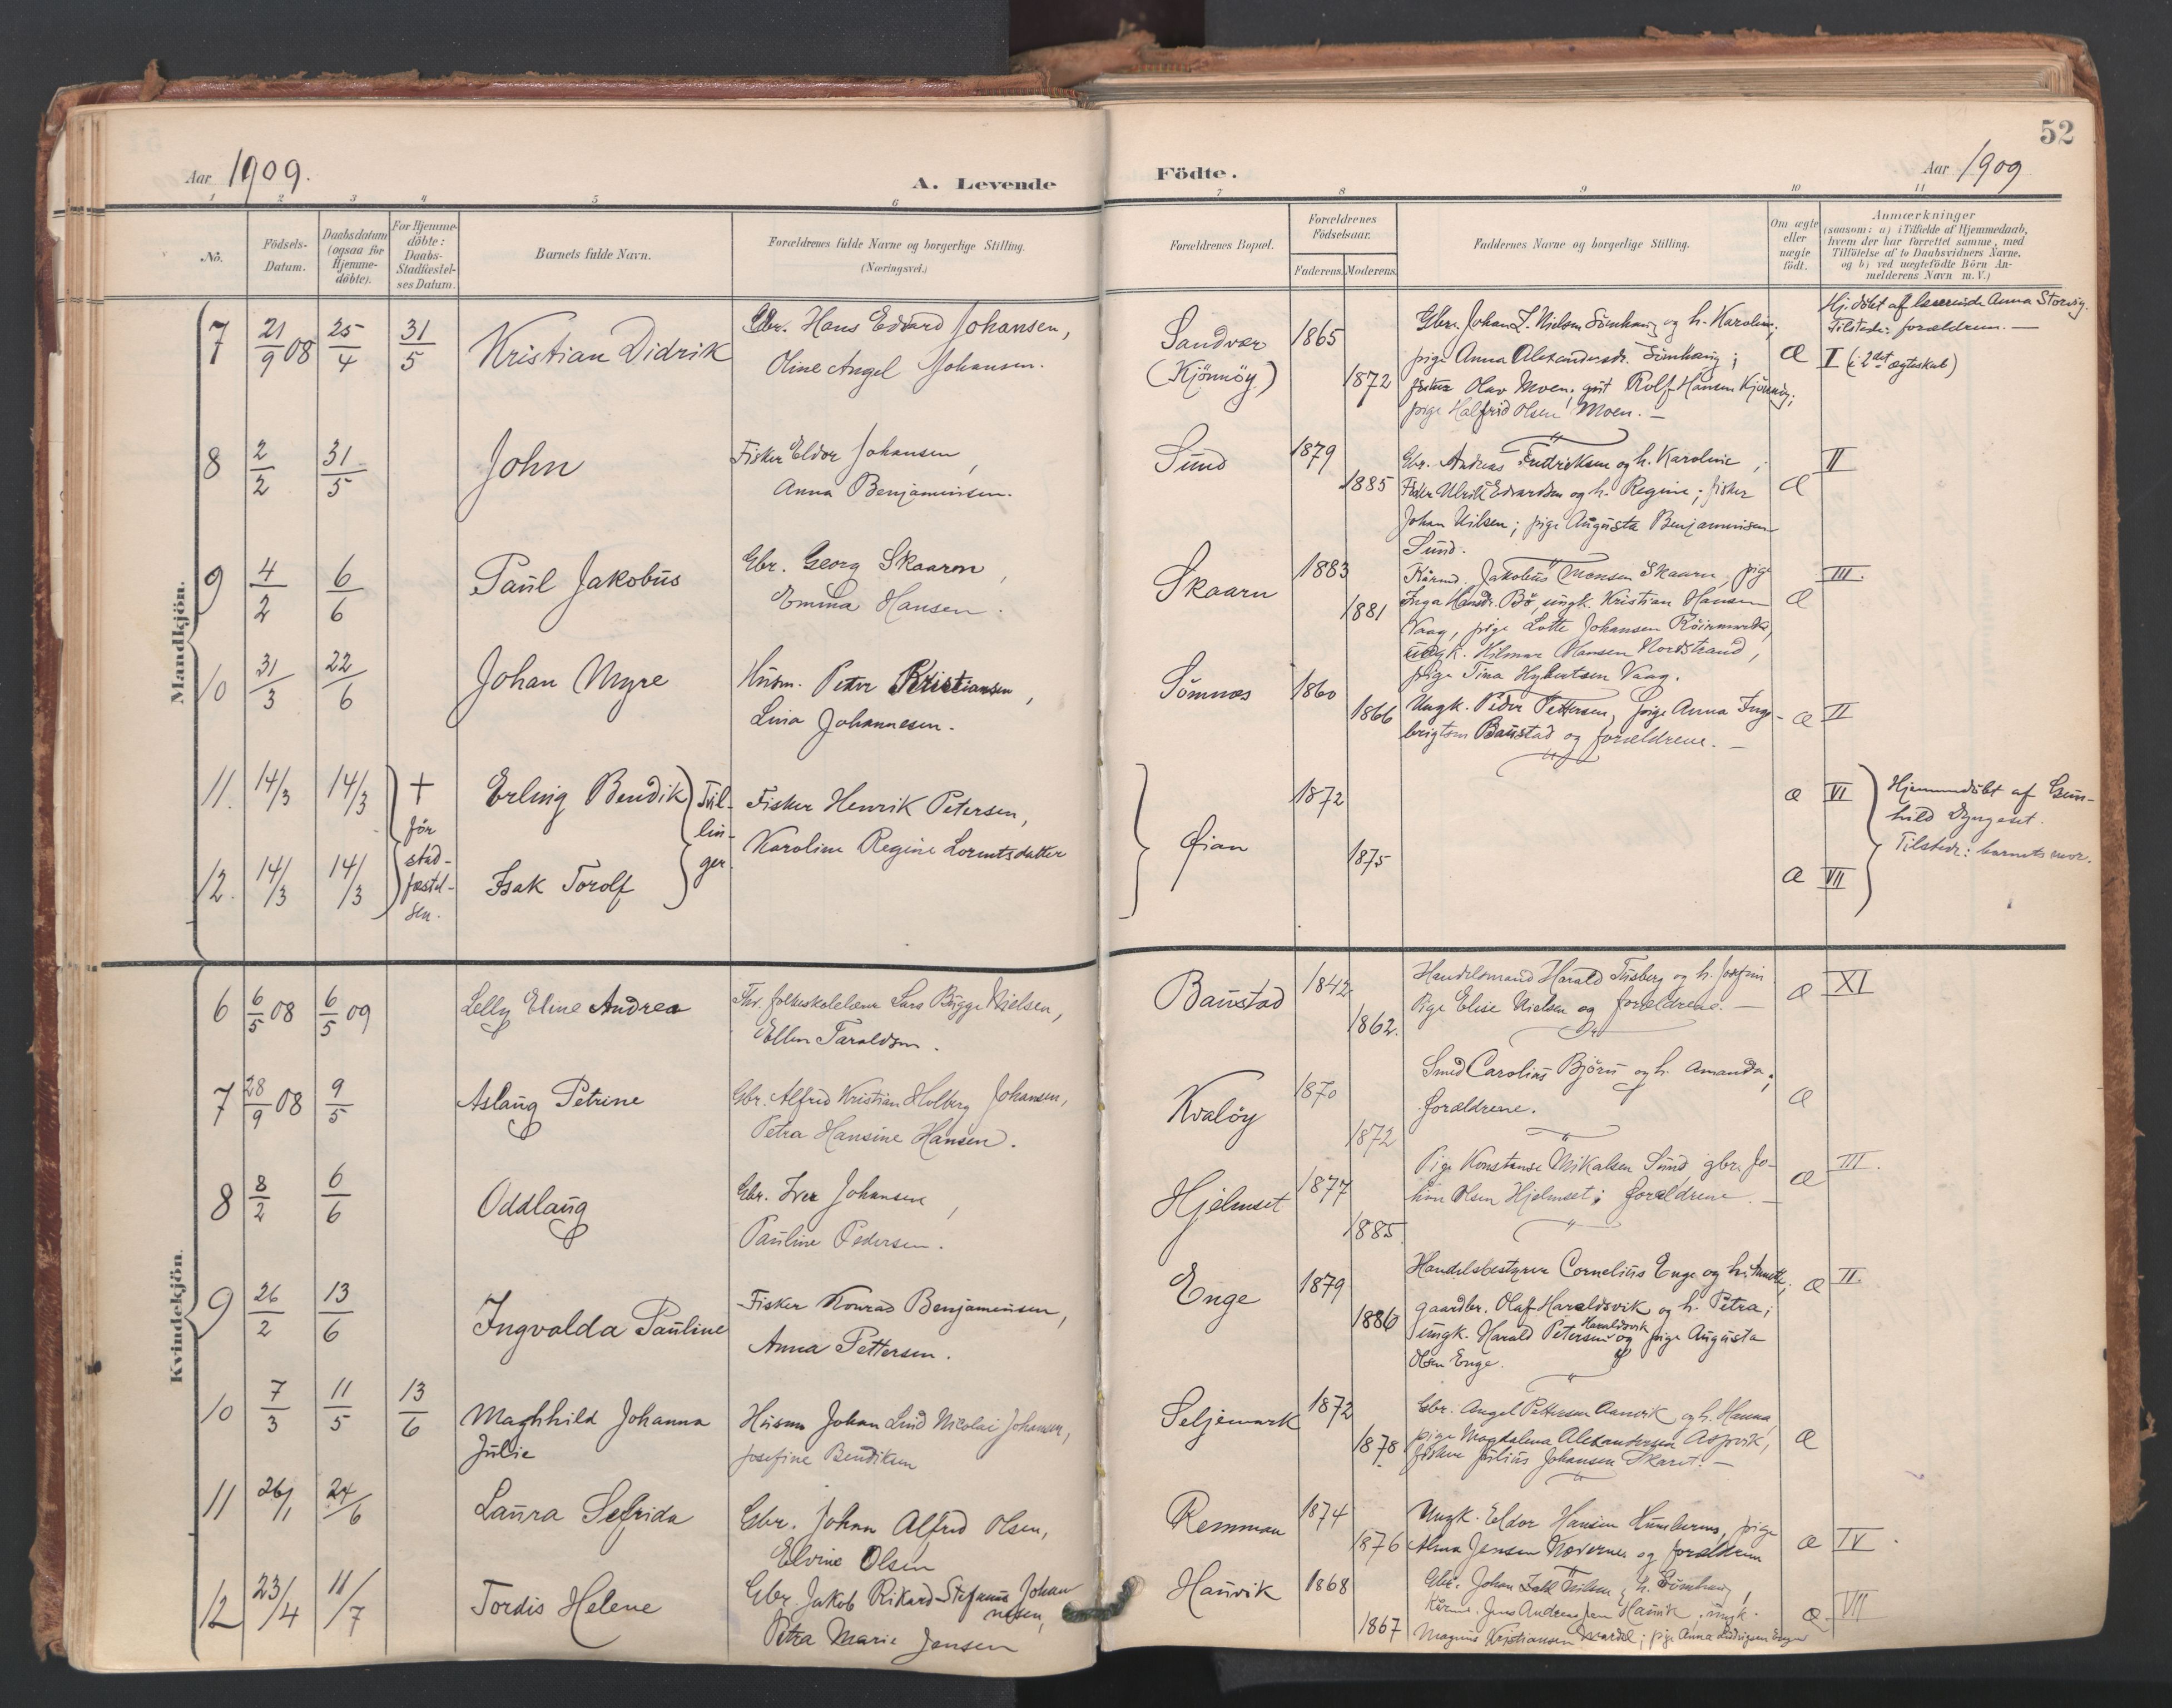 52
Aar 1909.
A. Levende
Födte.
Aar 1909
1 2 3 4 5 6
7 8 9 10 11
No.
Födsels-
Datum.
Daabsdatum
(ogsaa for
Hjemme-
döbte).
For Hjemme-
döbte:
Daabs-
Stadfæstel-
ses Datum.
Barnets fulde Navn.
Forældrenes fulde Navne og borgerlige Stilling.
(Næringsvei.)
Forældrenes Bopæl.
Forældrenes
Födselsaar.
Faderens. Moderens.
Faddernes Navne og borgerlige Stilling.
Om ægte
eller
uægte
födt.
Anmærkninger
(saasom: a) i Tilfælde af Hjemmedaab,
hvem der har forrettet samme, med
Tilföielse af to Daabsvidners Navne,
og b) ved uægtefödte Börn An-
melderens Navn m. V.)
Mandkjön.
7 21/9 08 25/4 31/5 Kristian Didrik
Gbr. Hans Edvard Johansen,
Oline Angel Johansen.
Sandvær
(Kjönnöy)
1865
1872
Gbr. Johan Nielsen og h. Karoline;
pige Anna
fisker Olav Moen; gut Rolf Hansen
pige Halfrid Olsen Moen. —
Æ
Hj. döbt af læerinde Anna Storvig.
Tilstede: forældrene. —
I (i 2det ægteskab)
8 2/2 31/5 John
Fisker Eldor Johansen,
Anna Benjaminsen.
Sund
1879
1885
Gbr. Andreas Fredriksen og h. Karoline;
Fisker Ulrik Edvardsen og h. Regine; fisker
Johan Nilsen; pige Augusta Benjaminsen
Sund.
Æ
II
9 4/2 6/6 Paul Jakobus
Gbr. Georg Skaaron,
Emma Hansen.
Skaarn
1883
1881
Kårmd. Jakobus Monsen Skaarn, pige
Inga Hansdr. Bö, ungk. Kristian Hansen
Vaag, pige Lotte Johansen
ungk. Hilmar Hansen Nordstrand,
pige Tina Vaag.
Æ
III.
10 31/3 22/6 Johan Myre
Husm. Peter Kristiansen,
Lina Johannesen.
Sömnæs
1860
1866
Ungk. Peder Pettersen, pige Anna Inge-
brigtsen Baustad og forældrene. —
Æ
II
11. 14/3 14/3 † Erling Bendik
för
stad-
fæstel-
sen.
Tvil-
lin-
ger.
Fisker Henrik Petersen,
Karoline Regine Lorentsdatter
12. 14/3 14/3 Isak Torolf
Öian
1872
1875
Æ VI
Æ VII
Hjemmedöbt af Gun-
hild Dyngeset.
Tilstede: barnets mor.
Kvindekjön.
6 6/5 08 6/5 09 Lelly Eline Andrea
folkeskolelærer Lars Bügge Nielsen,
Ellen Taraldsen.
Baustad
1842
1862.
Handelsmand Harald og h. Josefine
Pige Elise Nielsen og forældrene. —
Æ
XI
7 28/9 08 9/5 Aslaug Petrine
Gbr. Alfred Kristian Holberg Johansen,
Petra Hansine Hansen.
Kvalöy
1870
1872
Smed Carolius Björn og h. Amanda;
forældrene.
Æ
8 8/2 6/6 Oddlaug
Gbr. Iver Johansen,
Pauline Pedersen.
Hjelmset
1877
1885
Pige Konstanse Mikalsen Sund, gbr. Jo-
han Olsen Hjelmset; forældrene. —
Æ
III.
9 26/2 13/6 Ingvalda Pauline
Fisker Konrad Benjaminsen,
Anna Pettersen.
Enge
1879
1886
Handelsbestyrer Cornelius Enge og h. Anette;
gaardbr. Olaf Haraldsvik og h. Petra;
ungk. Harald Petersen Haraldsvik og pige Augusta
Olsen Enge.
Æ
II.
10 7/3 11/5 13/6 Maghhild Johanna
Julie
Husm Johan Lind Nicolai Johansen,
Josefine Bendiksen
Seljemark
1872
1878
Gbr. Angel Pettersen og h. Hanna,
pige Magdalena Alexandersen Aspvik,
fisker Julius Johansen Skaret. —
Æ
11 26/1 24/6 Laura Sefrida
Gbr. Johan Alfred Olsen,
Elvine Olsen
Remman
1874
1876
Ungk. Eldor Hansen pige
Alma Jensen og forældrene
Æ
IV
12 23/4 11/7 Tordis Helene
Gbr. Jakob Rikard Stefanus Johan
nesen,
Petra Marie Jensen
Hauvik
1868
1867
Gbr. Johan
Kårmd. Jens Hauvik; ungk.
Magnus Kristiansen pige Anna
Æ
VII